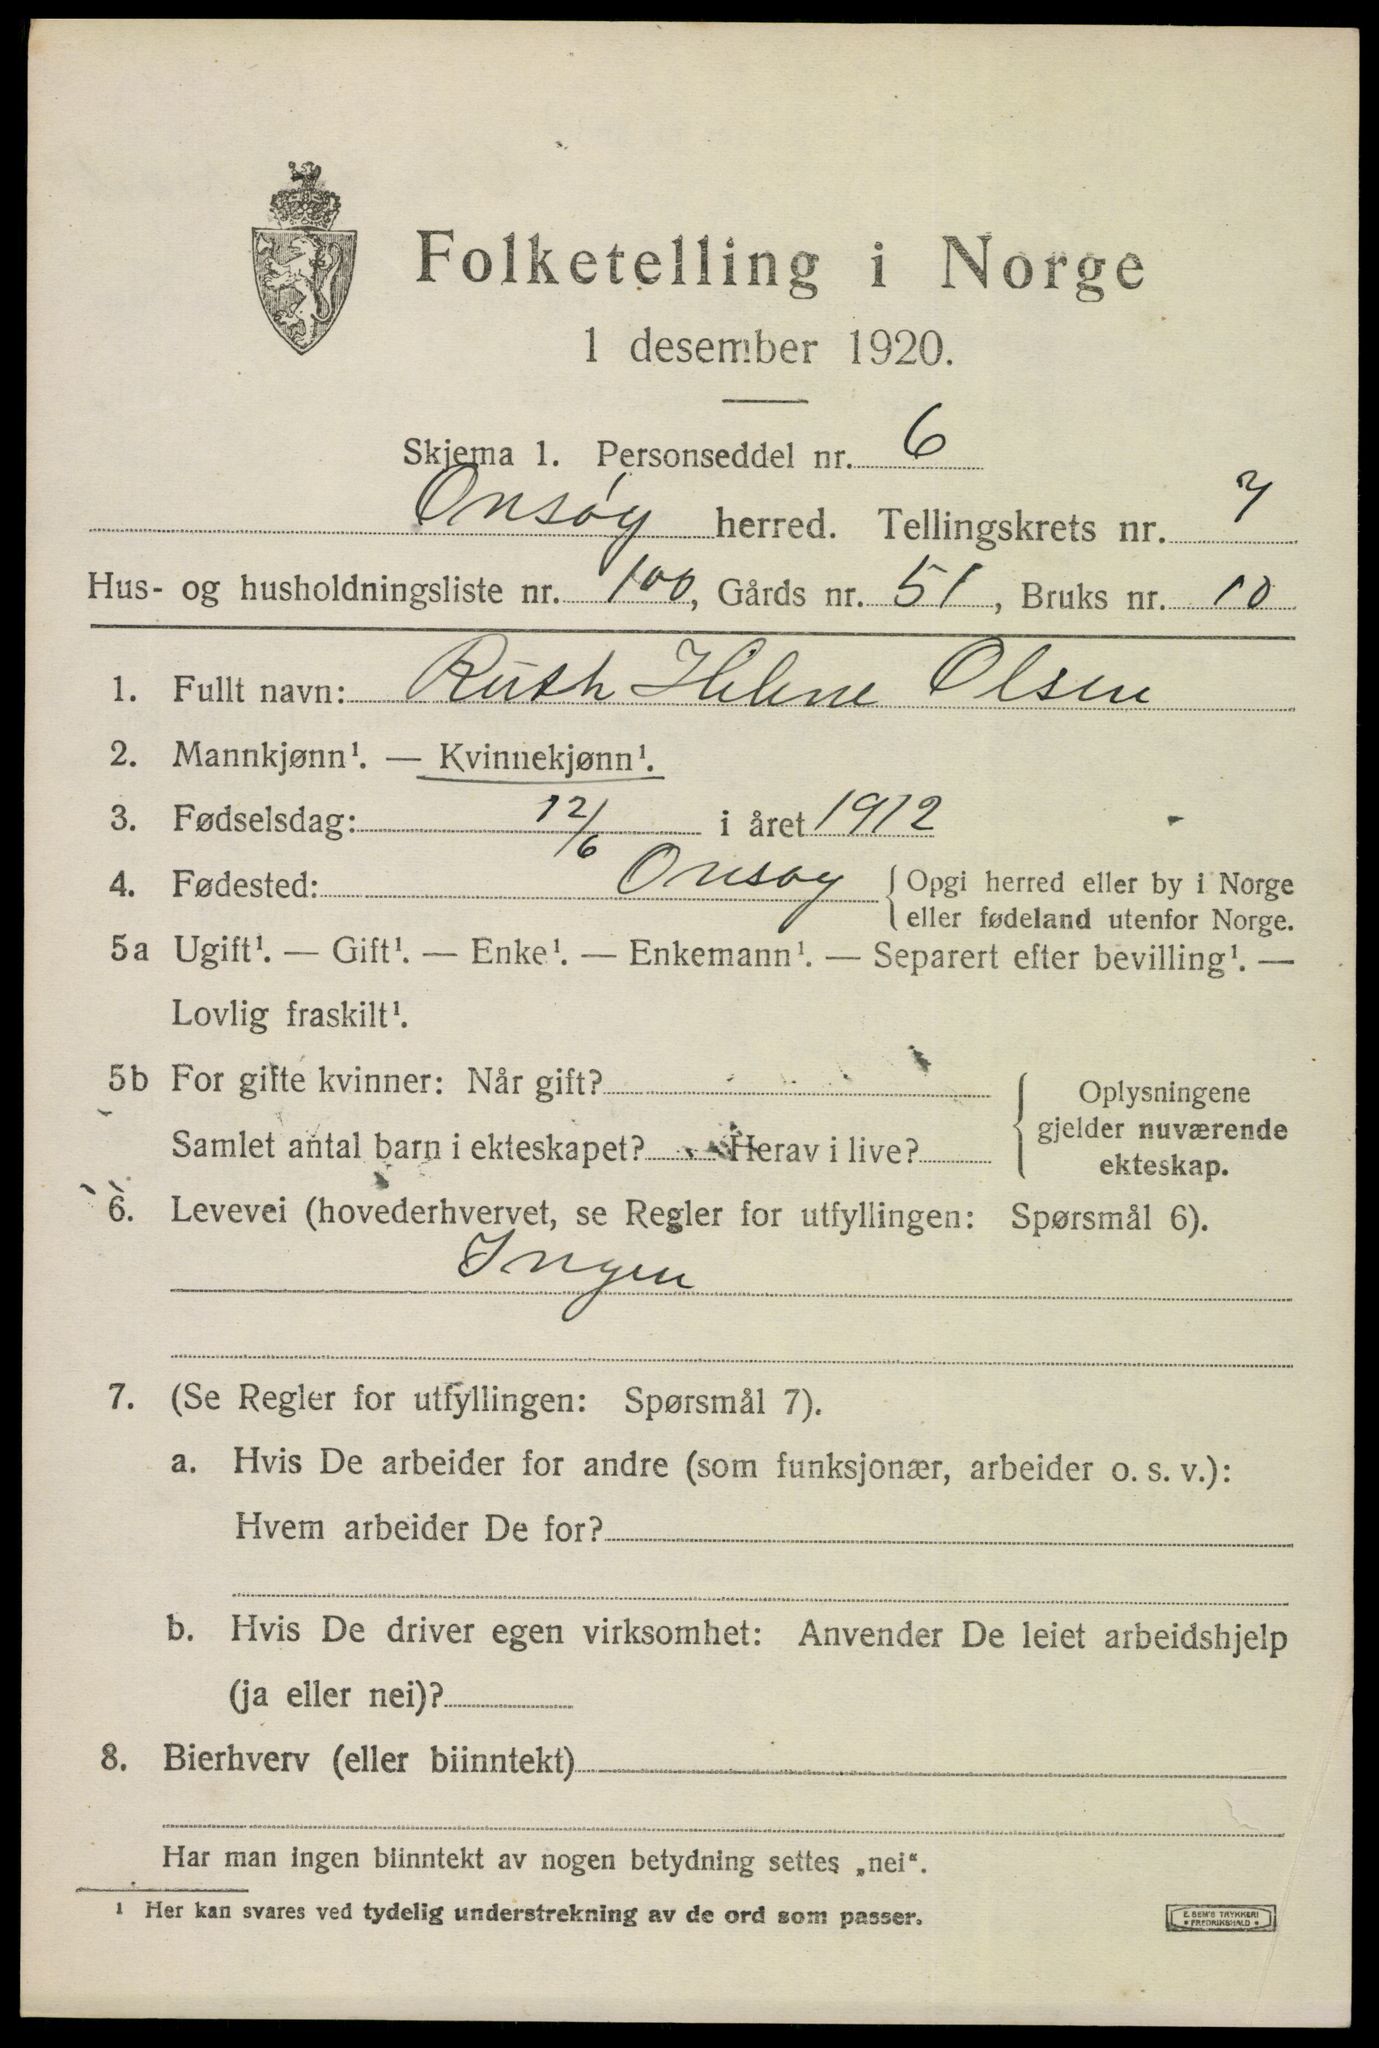 Folketelling i Norge
1 desember 1920.
Skjema 1. Personseddel nr. 6
Onsøy herred. Tellingskrets nr. 7
Hus- og husholdningsliste nr. 100, Gårds nr. 51, Bruks nr. 10
1. Fullt navn: Ruth Helene Olsen
2. Mannkjønn¹. — Kvinnekjønn¹.
3. Fødselsdag: 12/6 i året 1912
4. Fødested: Onsøy { Opgi herred eller by i Norge
eller fødeland utenfor Norge.
5a Ugift¹. — Gift¹. — Enke¹. — Enkemann¹. — Separert efter bevilling¹. —
Lovlig fraskilt¹.
5b For gifte kvinner: Når gift?
Samlet antal barn i ekteskapet? Herav i live?
Oplysningene
gjelder nuværende
ekteskap.
6. Levevei (hovederhvervet, se Regler for utfyllingen: Spørsmål 6).
Ingen
7. (Se Regler for utfyllingen: Spørsmål 7).
a. Hvis De arbeider for andre (som funksjonær, arbeider o. s. v.):
Hvem arbeider De for?
b. Hvis De driver egen virksomhet: Anvender De leiet arbeidshjelp
(ja eller nei)?
8. Bierhverv (eller biinntekt)
Har man ingen biinntekt av nogen betydning settes „nei“.
¹ Her kan svares ved tydelig understrekning av de ord som passer.
E. SEM'S TRYKKERI
• FREDRIKSHALD •